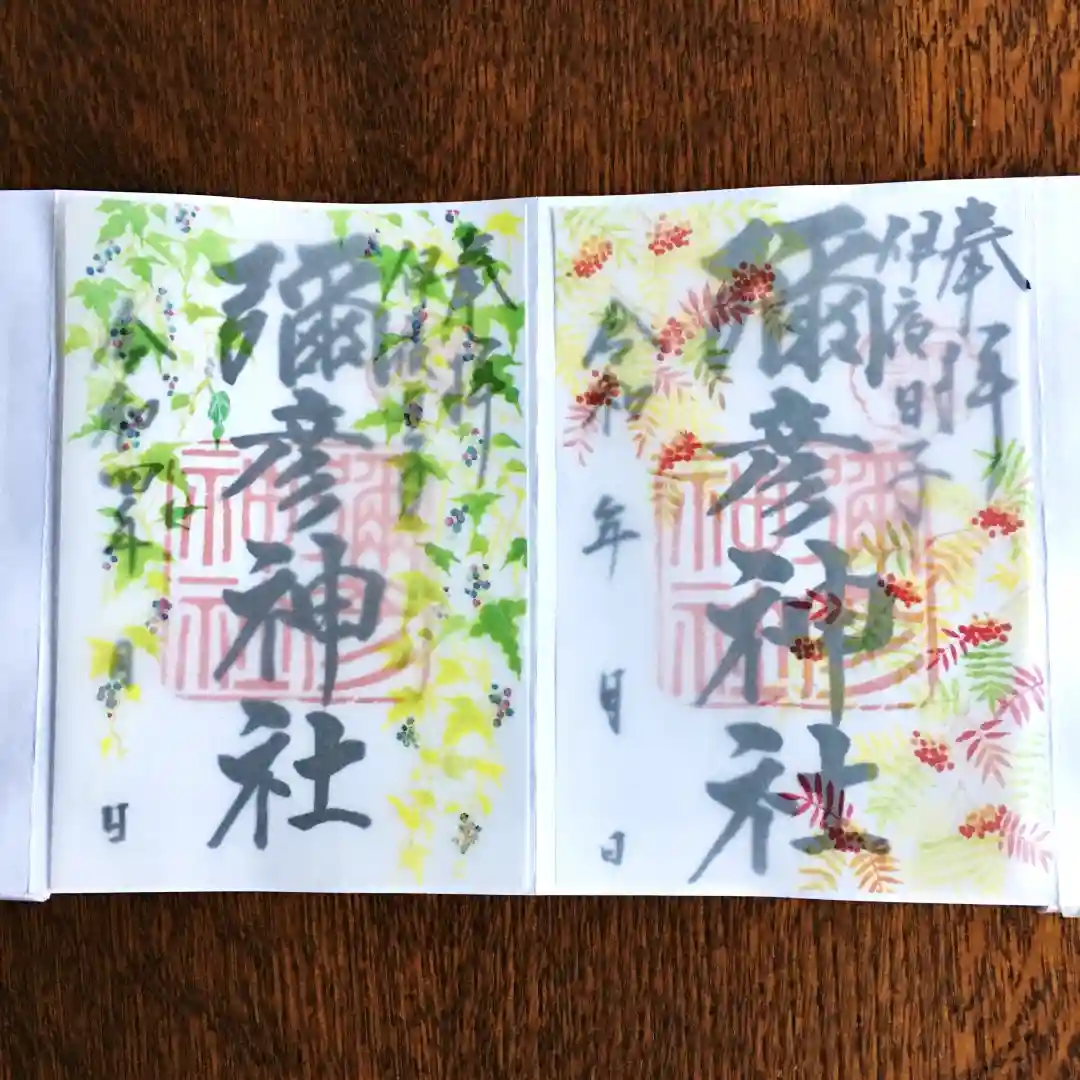 奉拝
伊夜日子
彌彦神社
彌彦神社
令和 年 月 日
奉拝
伊夜日子
彌彦神社
彌彦神社
令和四年 月 日